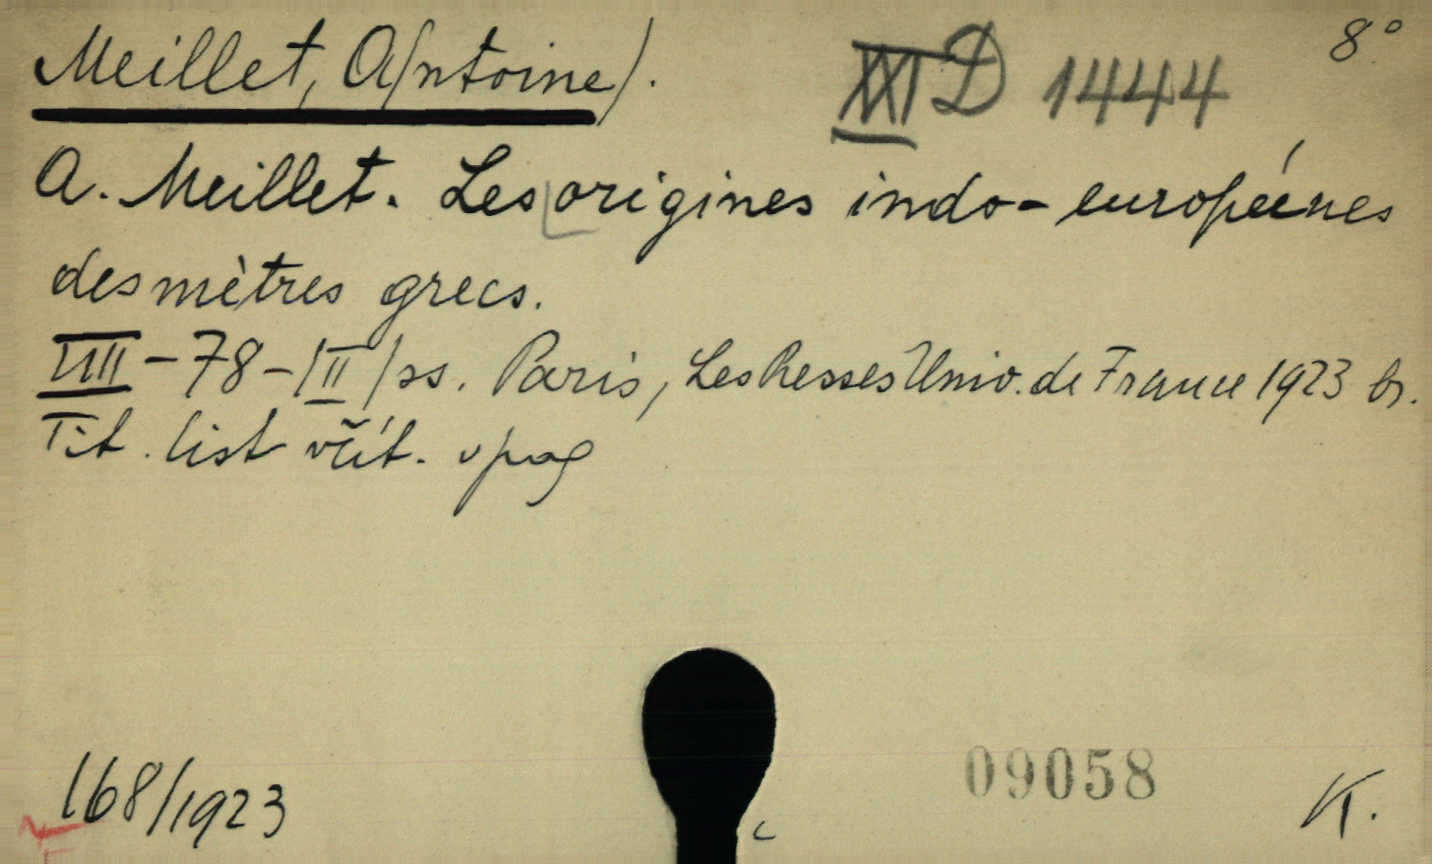 Meillet, A(ntoine).
XXI D 1444
8°
A. Meillet. Les origines indo-européenes
des mètres grecs.
VIII-78-/II/ss. Paris, Les Presses Univ. de France 1923 br.
Tit. list včít. v pag
168/1923
09058
K.